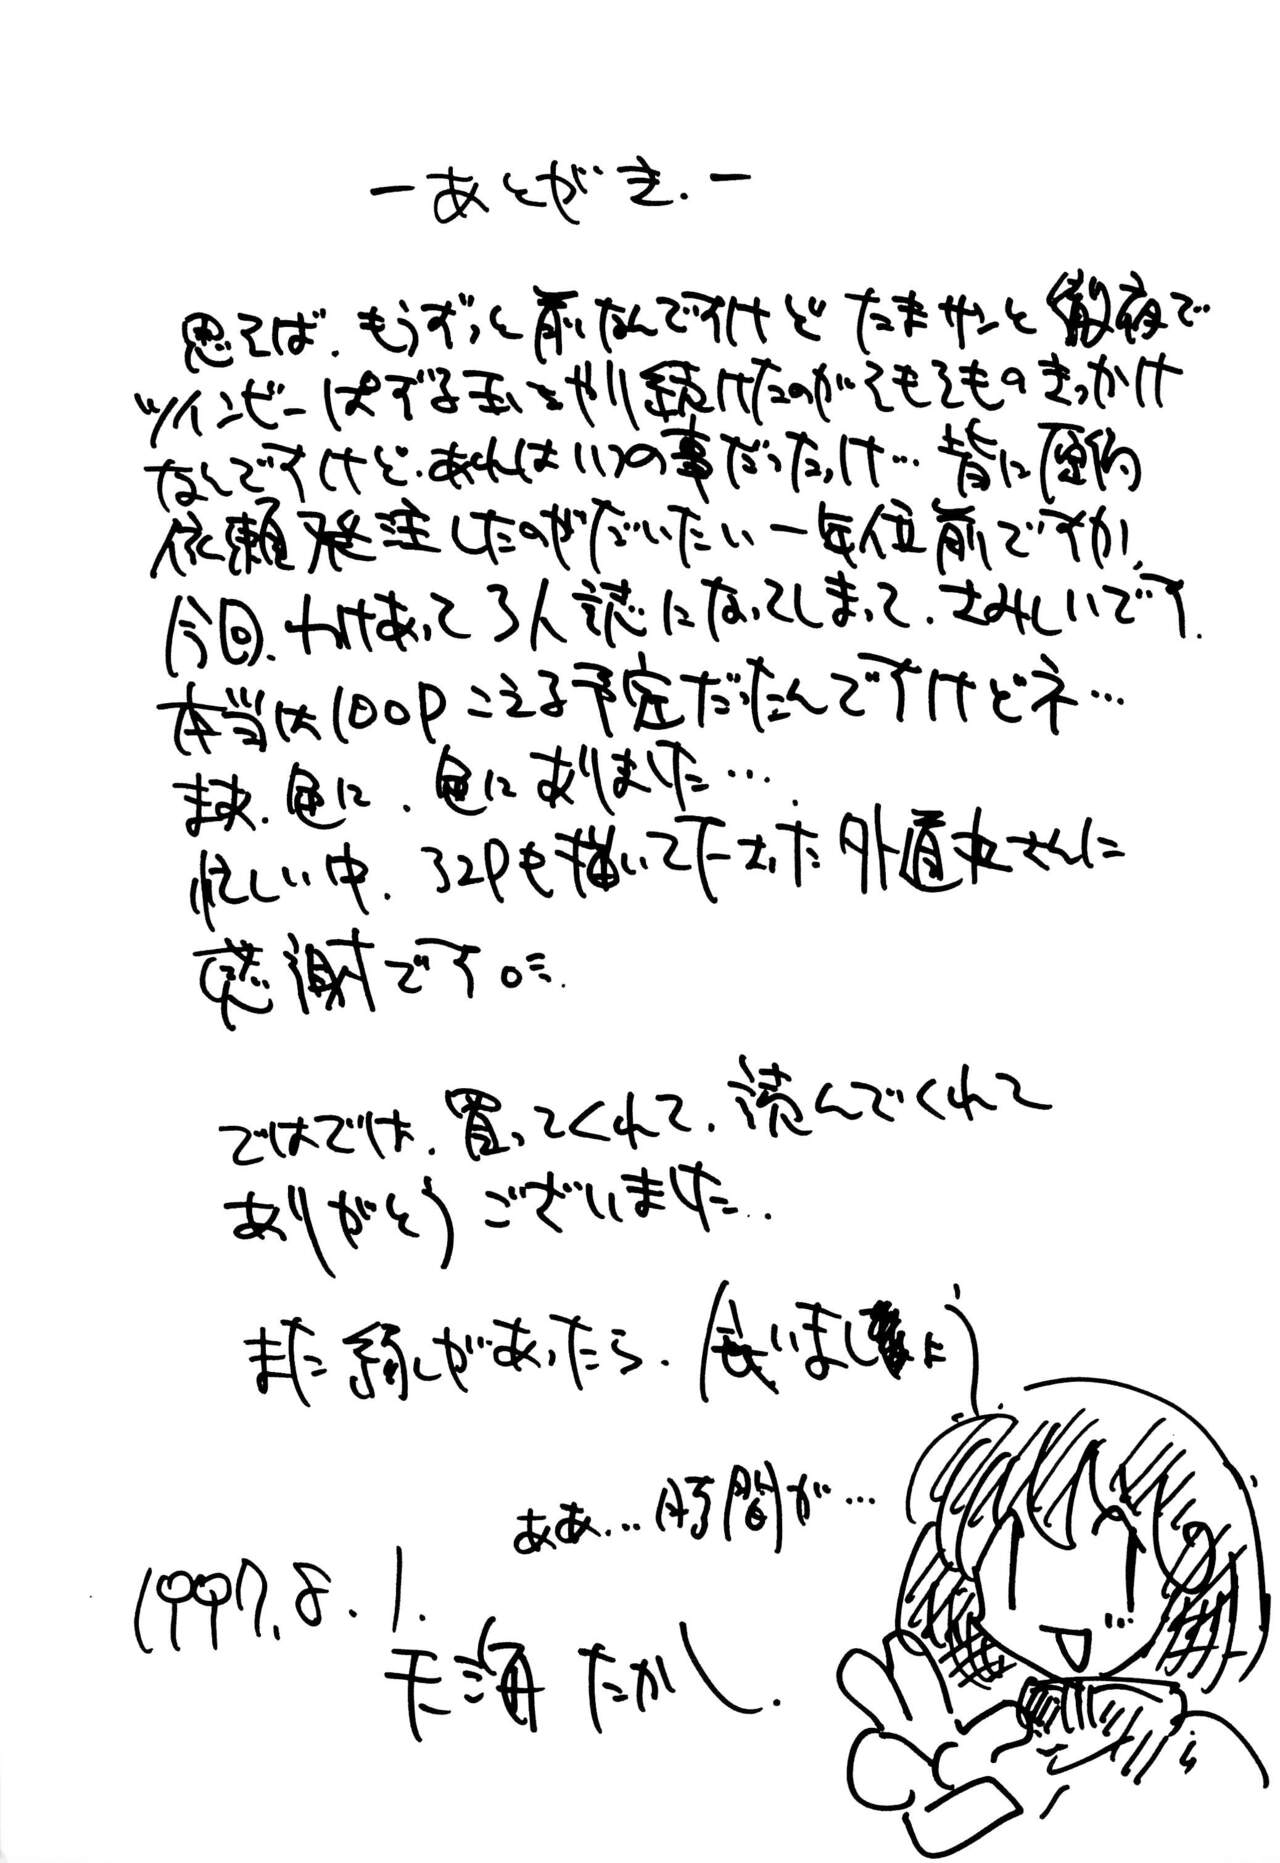 ーあとがき.ー
思えば、もうずっと前なんですけど たまサンと 徹夜で
ツインビーぱずる玉をやり続けたのがそもそものきっかけ
なんですけど、あれはいつの事だったっけ… 皆に
依頼発注したのがだいたい一年位前ですか、
今回、わけあって3人誌になってしまって、さみしいです.
本当は100Pこえる予定だったんですけどネ…
まあ、色に、色にありました…
忙しい中、32Pも描いて下さった 外道丸さんに
感謝です。
ではでは、買ってくれて、読んでくれて
ありがとうございました.
また縁があったら、会いましょう
ああ… 時間が…
1997.8.1.
天海 たかし.